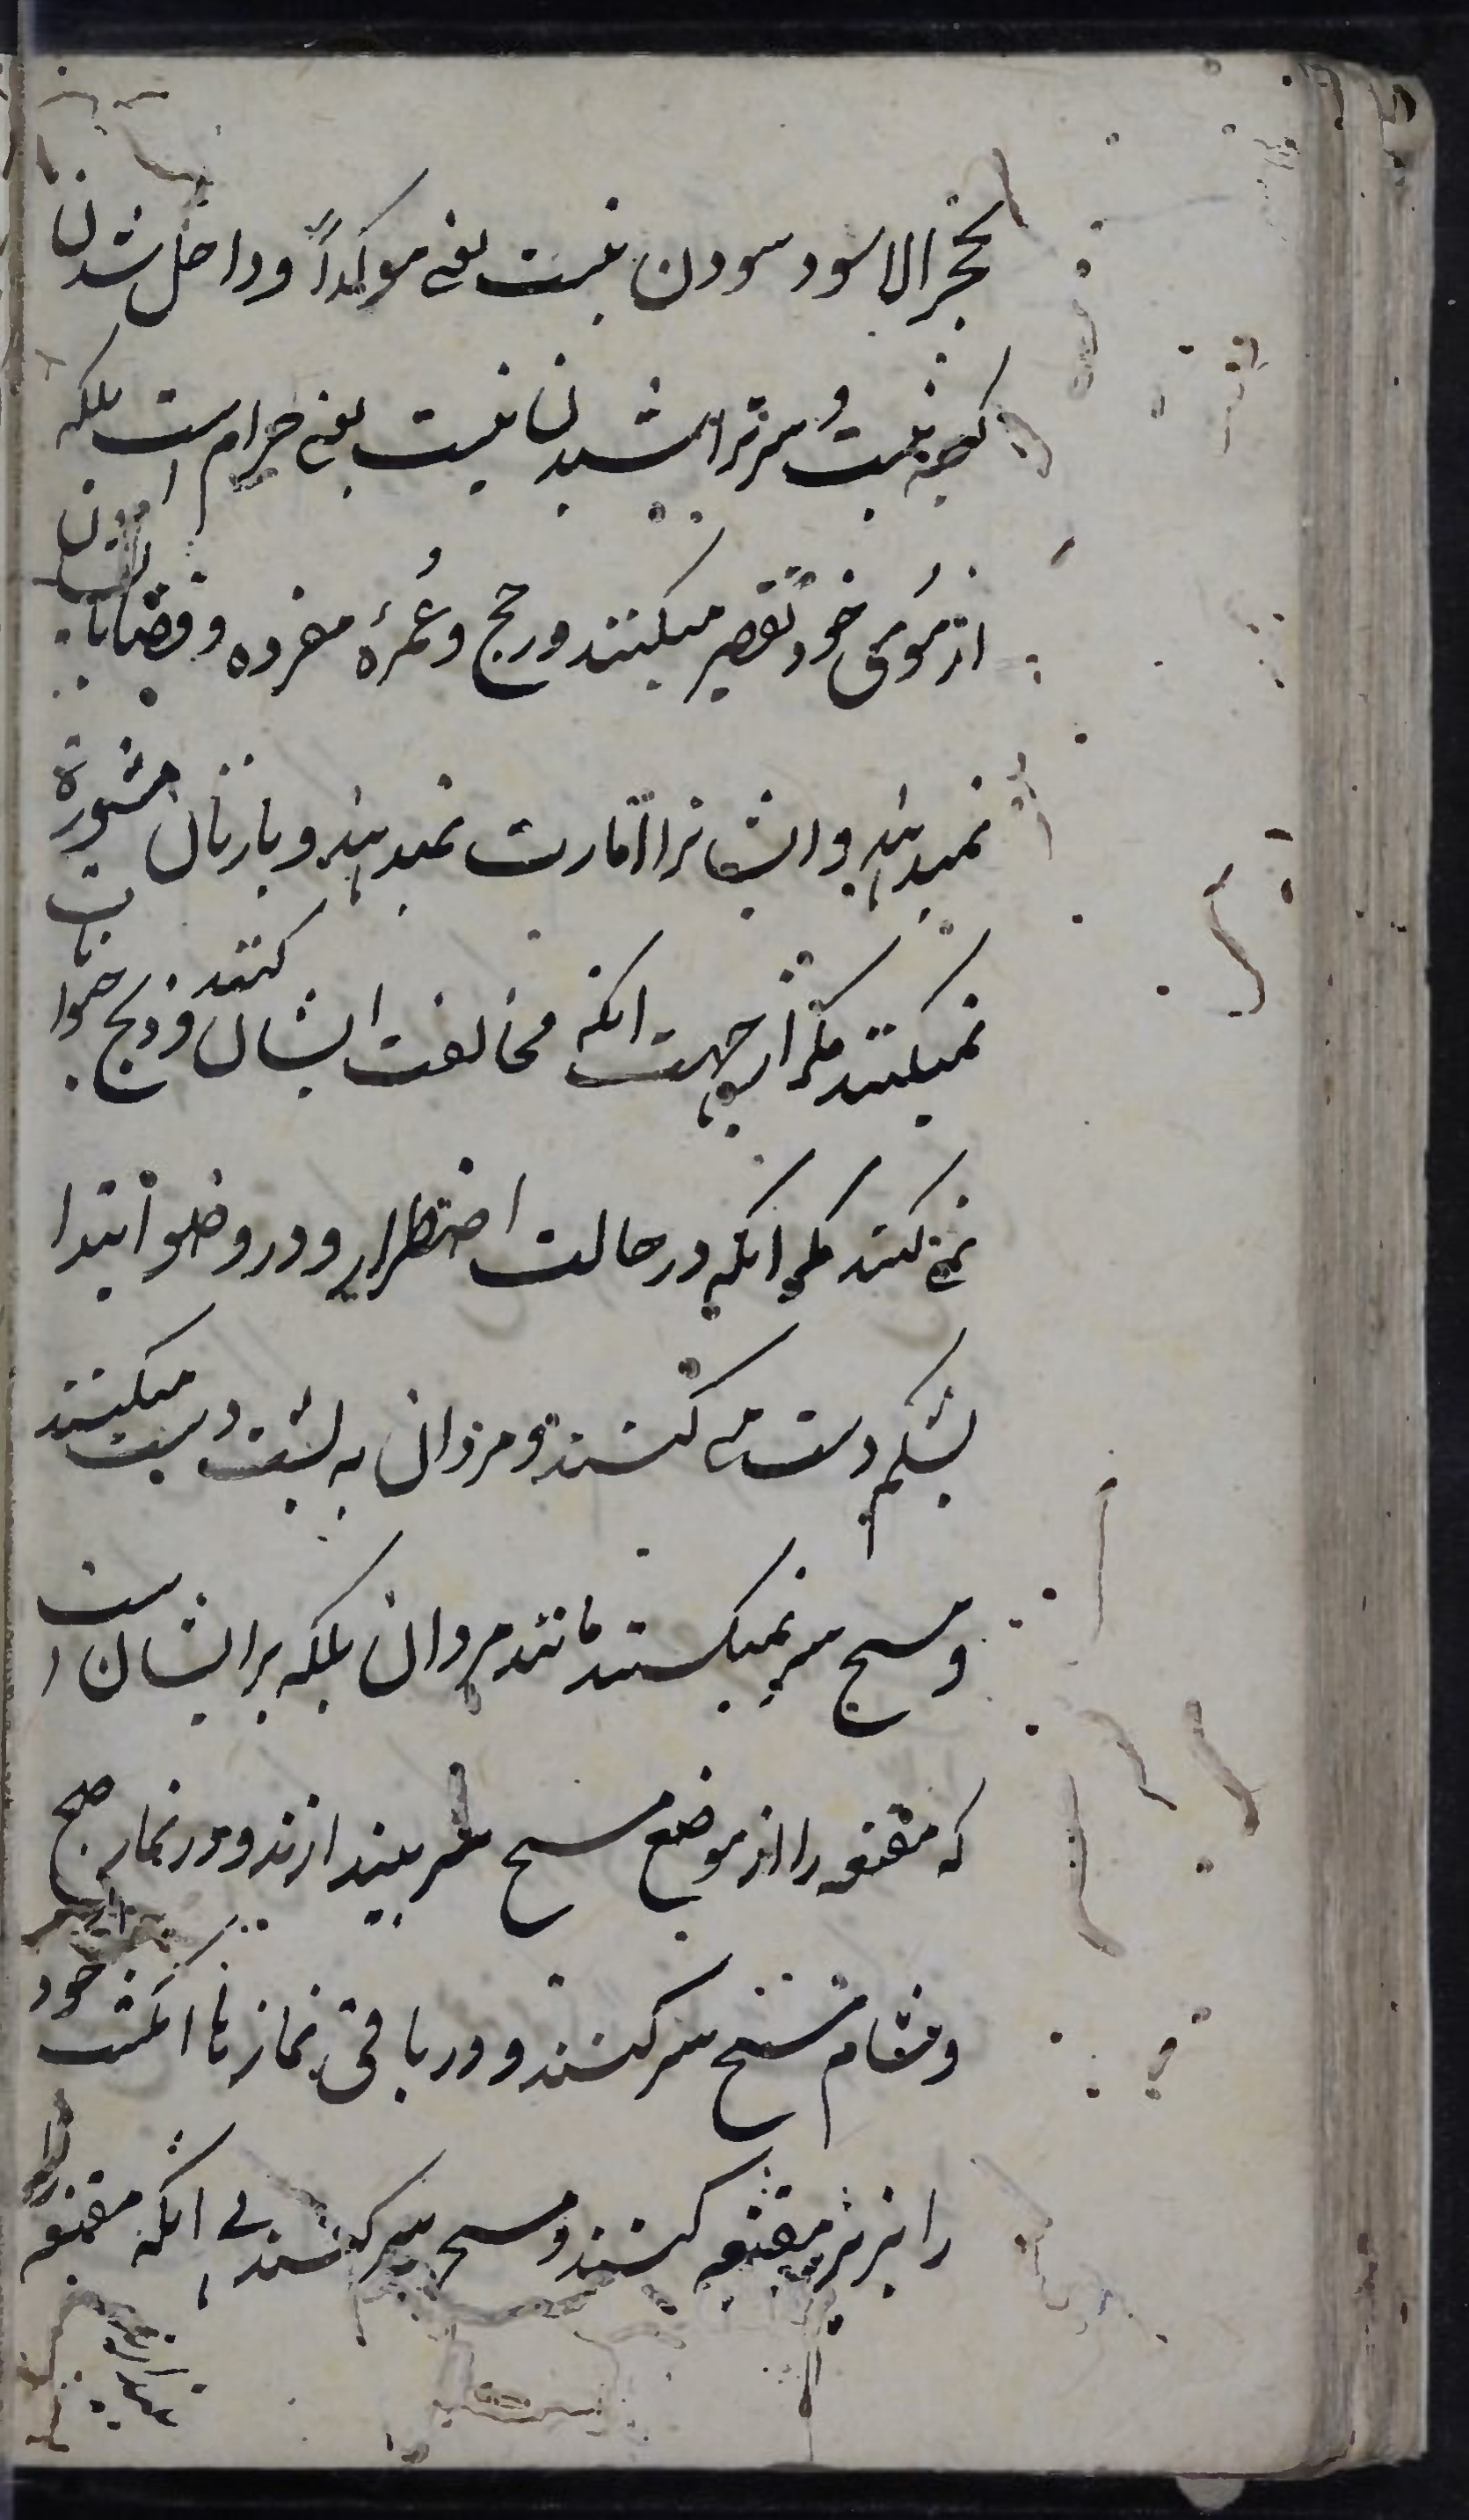 بحجر الاسود سودن نیست یعنی موکداً و داخل شدن
کعبه نیست و سر تراشیدن نیست یعنی حرام است بلکه
از موی خود تقصیر میکنند در حج و عُمرهٔ مفرده و قضا بایشان
نمیدهند و ایشانرا امارت نمیدهند و با زنان مشورة
نمیکنند مگر از جهت انکه مخالفت ایشان کنند و ذبح حیوانات
نمی کنند مگر انکه در حالت اضطرار و در وضو ابتدا
بشکم دست می کنند و مردان به پشت دست میکنند
و مسح سر نمیکنند مانند مردان بلکه بر ایشان است
که مقنعه را از موضع مسح سر بیندازند و در نماز صبح
و شام مسح سر کنند و در باقی نمازها انگشت خود
را بزیر مقنعه کنند و مسح سر کنند بی انکه مقنعه را